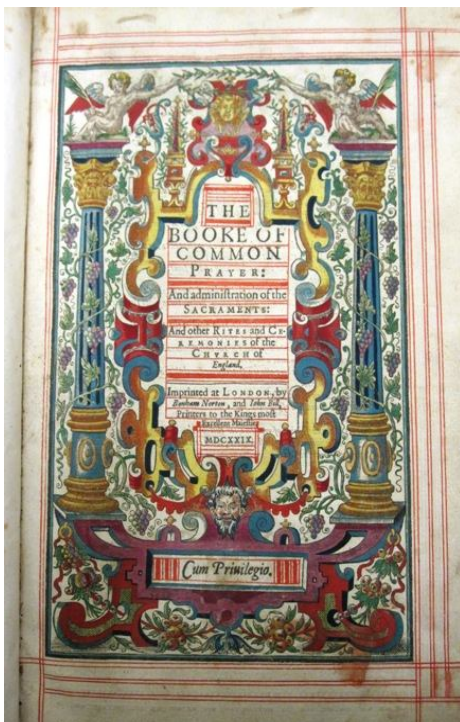 THE
BOOKE OF
COMMON
PRAYER:
And administration of the
SACRAMENTS:
And other RITES and CE-
REMONIES of the
CHVRCH of
England,
Imprinted at LONDON, by
Bonham Norton, and Iohn Bill,
Printers to the Kings most
Excellent Maiestie.
MDCXXIX.
Cum Priuilegio.